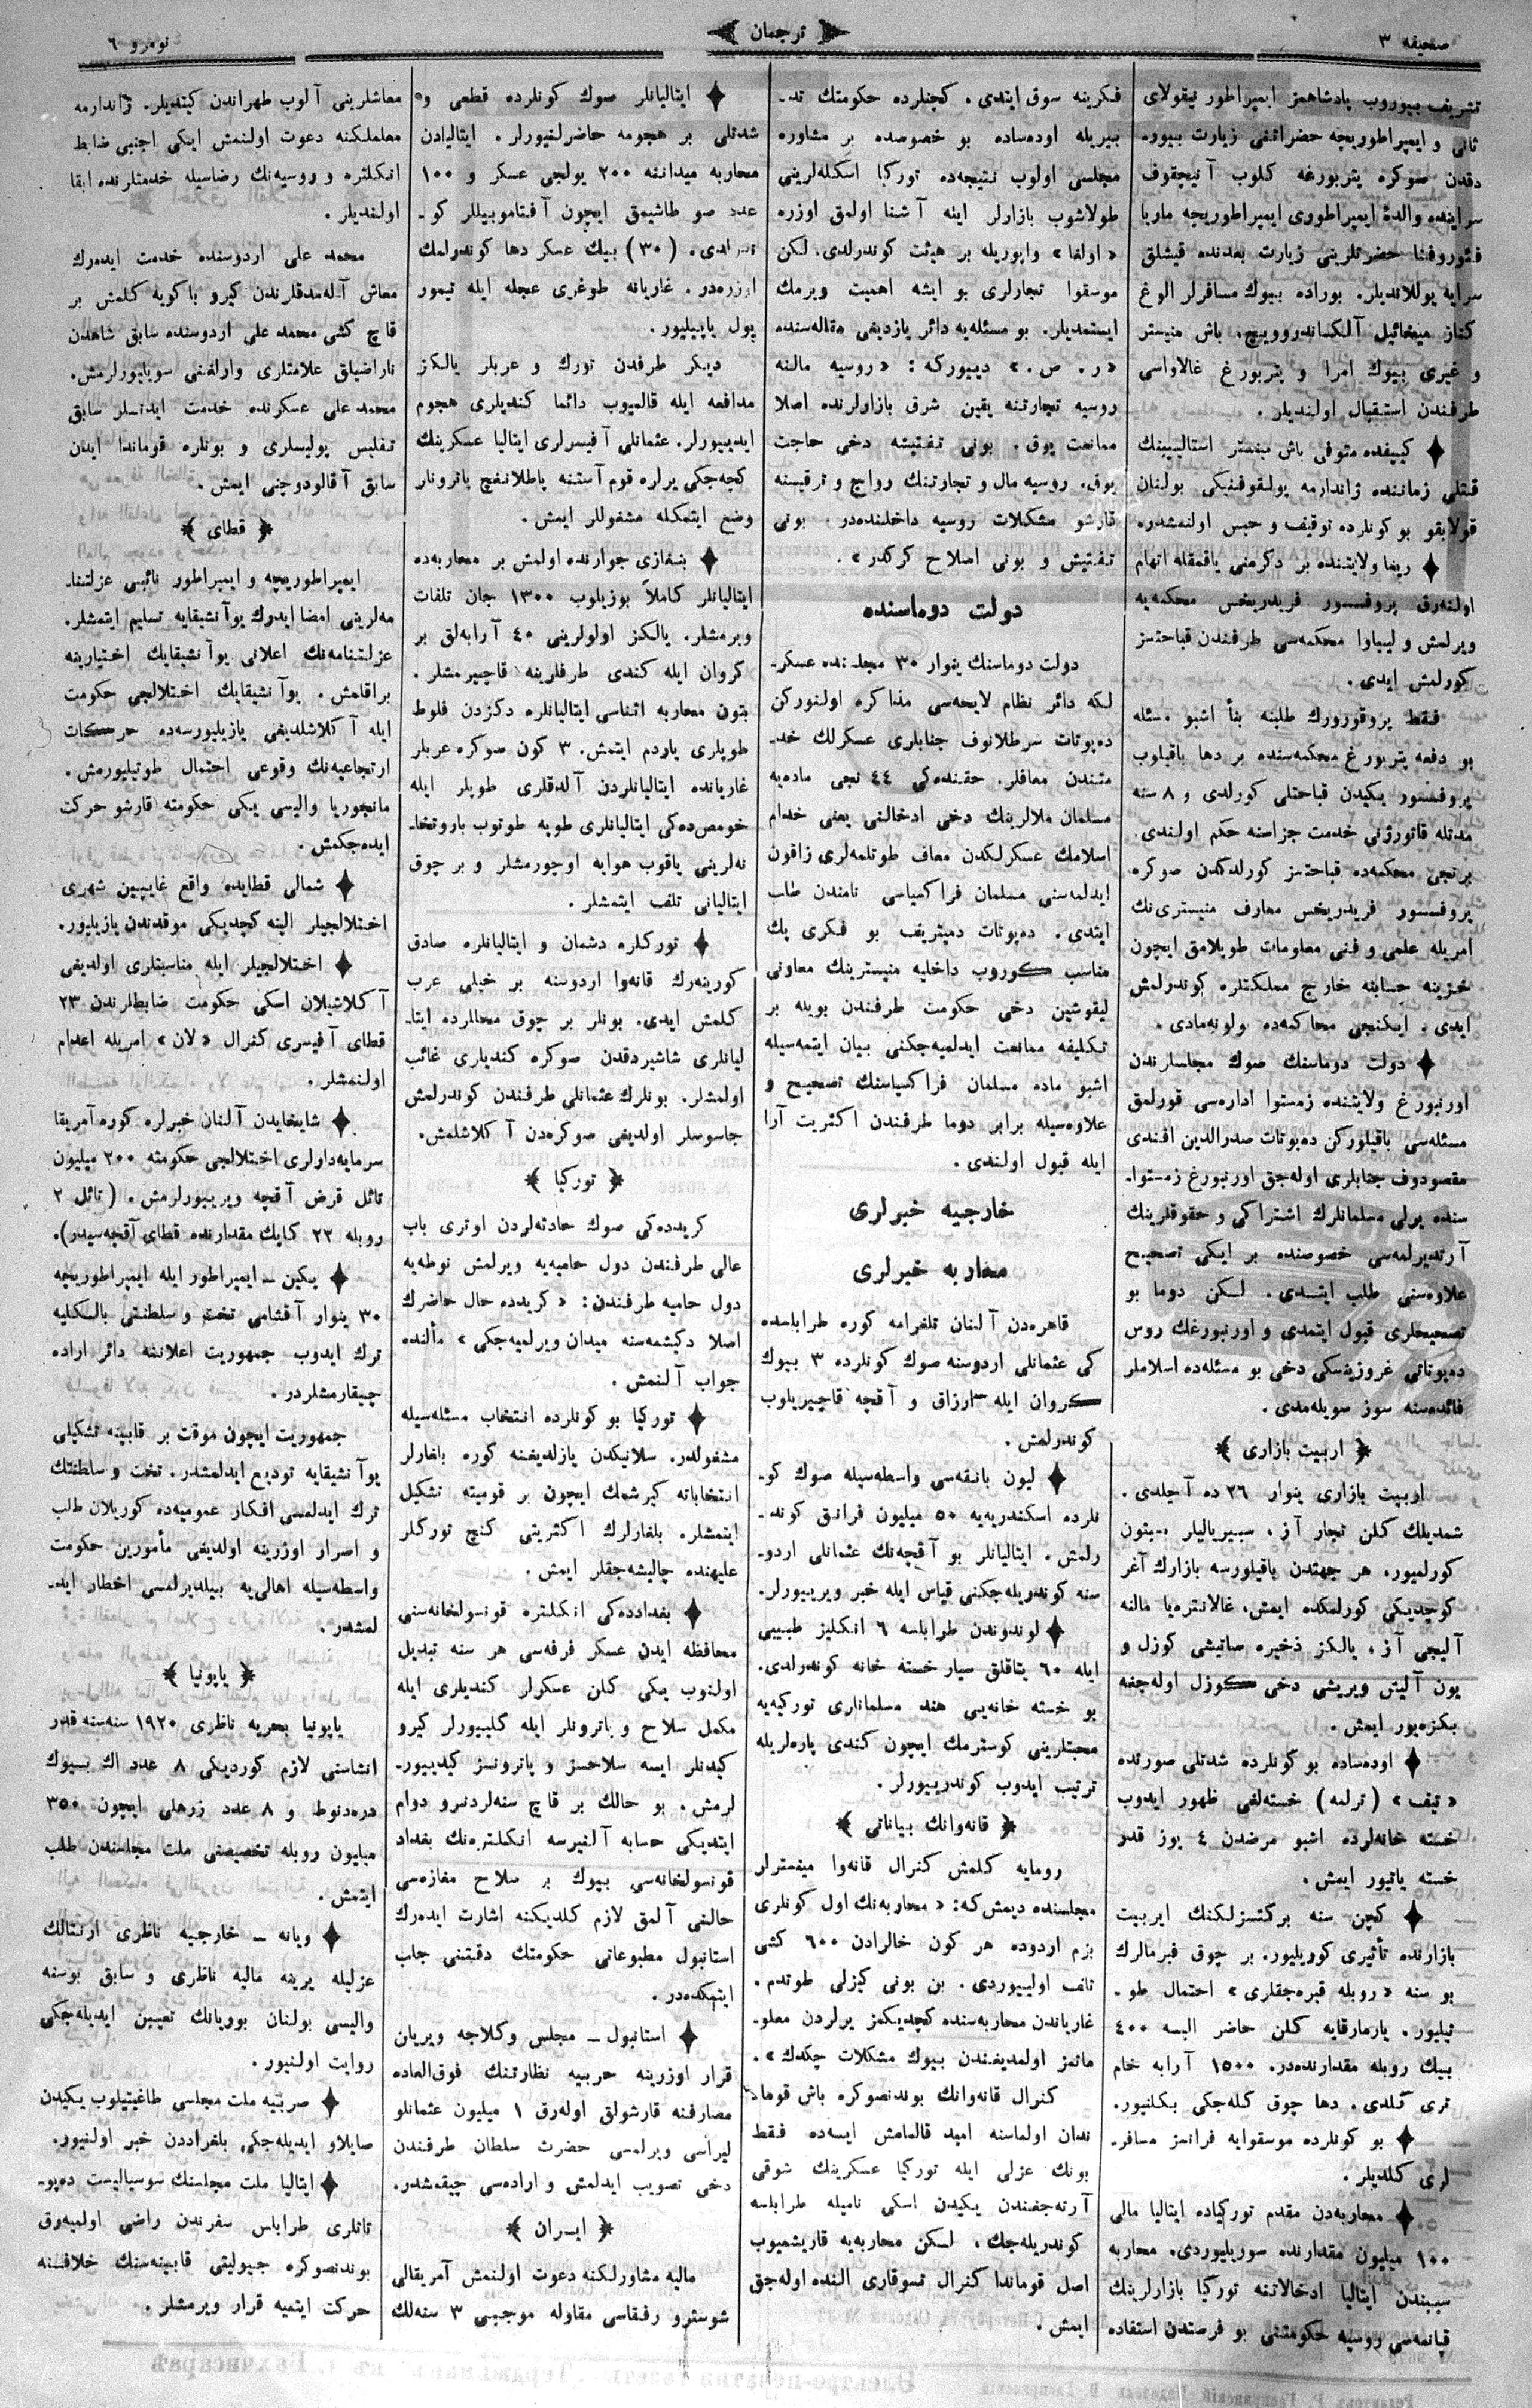 صحیفه ٣
ترجمان
نومرو ٦
تشریف بیوروب پادشاهمز ایمپراطور نیقولای
ثانی و ایمپراطوریچه حضراتنی زیارت بیور-
دقدن صوکره پتربورغه کلوب آنیچقوف
سراینده والدۀ ایمپراطوری ایمپراطوریچه ماریا
فئوروفنا حضرتلرینی زیارت بعدنده قیشلق
سرایه یوللاندیلر. بوراده بیوك مسافرلر الوغ
کناز میخائیل آلکساندروویچ، باش منیستر
و غیری بیوك امرا و پتربورغ غالاواسی
طرفندن استقبال اولندیلر.
کییفده متوفی باش مینستر استالیپینك
قتلی زماننده ژاندارمه پولقوفنیکی بولنان
قولابقو بو کونلرده توقیف و حبس اولنمشدره
ریغا ولایتنده بر دکرمنی یاقمقله اتهام
اولنه‌رق پروفسسور فریدریخس محکمه‌یه
ویرلمش و لیباوا محکمه‌سی طرفندن قباحتسز
کورلمش ایدی.
فقط پروقورورك طلبنه بنأ اشبو مسئله
بو دفعه پتربورغ محکمه‌سنده بر دها باقیلوب
پروفسسور یکیدن قباحتلی کورلدی و ٨ سنه
مدتله قاتورژنی خدمت جزاسنه حکم اولندی.
برنجی محکمه‌ده قباحتسز کورلدکدن صوکره
پروفسسور فریدریخس معارف منیستری‌نك
امریله علمی و فنی معلومات طوپلامق ایچون
خزینه حسابنه خارج مملکتلره کوندرلمش
ایدی. ایکنجی محاکمه‌ده بولونه‌مادی.
دولت دوماسنك صوك مجلسلرندن
اورنبورغ ولایتنده زمستوا اداره‌سی قورلمق
مسئله‌سی باقیلورکن ده‌پوتات صدرالدین افندی
مقصودوف جنابلری اوله‌جق اورنبورغ زمستوا-
سنده یرلی مسلمانلرك اشتراکی و حقوقلرینك
آرتدیرلمه‌سی خصوصنده بر ایکی تصحیح
علاوه‌سنی طلب ایتدی. لکن دوما بو
تصحیحلری قبول ایتمدی و اورنبورغك روس
ده‌پوتاتی غروزینسکی دخی بو مسئله‌ده اسلاملر
فائده‌سنه سوز سویله‌مدی.
اربیت بازاری
اربیت بازاری ینوار ٢٦ ده آچلدی.
شمدیلك کلن تجار آز، سیبریالیلر بتون
کورلمیور، هر جهتدن باقیلورسه بازارك آغر
کوچدیکی کورلمکده ایمش، غالانتره‌یا مالنه
آلیجی آز، یالکز ذخیره صاتیشی کوزل و
یون آلیش ویریشی دخی کوزل اوله‌جغه
بکزه‌یور ایمش.
اوده‌ساده بو کونلرده شدتلی صورتده
«تیف» (ترلمه) خسته‌لغی ظهور ایدوب
خسته خانه‌لرده اشبو مرضدن ٤ یوز قدر
خسته یاتیور ایمش.
کچن سنه برکتسزلکنك ایربیت
بازارنده تأثیری کوریلیور. بر چوق فیرمالرك
بو سنه «روبله قیره‌جقلری» احتمال طو-
تیلیور. یارمارقایه کلن حاضر البسه ٤٠٠
بیك روبله مقدارنده‌در. ١٥٠٠ آرابه خام
تری کلدی. دها چوق کله‌جکی بکلنیور.
بو کونلرده موسقوایه فرانسز مسافر-
لری کلدیلر.
محاربه‌دن مقدم تورکیاده ایتالیا مالی
١٠٠ میلیون مقدارنده سوریلیوردی. محاربه
سببندن ایتالیا ادخالاتنه تورکیا بازارلرینك
قپانمه‌سی روسیه حکومتنی بو فرصتدن استفاده
فکرینه سوق ایتدی. کچنلرده حکومتك تد-
بیریله اوده‌ساده بو خصوصده بر مشاوره
مجلسی اولوب نتیجه‌ده تورکیا اسکله‌لرینی
طولاشوب بازارلر ایله آشنا اولمق اوزره
«اولغا» واپوریله بر هیئت کوندرلدی. لکن
موسقوا تجارلری بو ایشه اهمیت ویرمك
ایستمدیلر. بو مسئله‌یه دائر یازدیغی مقاله‌سنده
«ر. ص.» دییورکه: «روسیه مالنه
روسیه تجارتنه یقین شرق بازارلرنده اصلا
ممانعت یوق. بونی تفتیشه دخی حاجت
یوق. روسیه مال و تجارتنك رواج و ترقیسنه
قارشو مشکلات روسیه داخلنده‌در. بونی
تفتیش و بونی اصلاح کرکدر».
دولت دوماسنده
دولت دوماسنك ینوار ٣٠ مجلسنده عسکر-
لکه دائر نظام لایحه‌سی مذاکره اولنورکن
ده‌پوتات سرطلانوف جنابلری عسکرلك خد-
متندن معافلر. حقنده‌کی ٤٤ نجی ماده‌یه
مسلمان ملالرینك دخی ادخالنی یعنی خدام
اسلامك عسکرلکدن معاف طوتلمه‌لری زاقون
ایدلمه‌سنی مسلمان فراکسیاسی نامندن طلب
ایتدی. ده‌پوتات دمیتریف بو فکری پك
مناسب کوروب داخلیه منیسترینك معاونی
لیقوشین دخی حکومت طرفندن بویله بر
تکلیفه ممانعت ایدلمیه‌جکنی بیان ایتمه‌سیله
اشبو ماده مسلمان فراکسیاسنك تصحیح و
علاوه‌سیله برابر دوما طرفندن اکثریت آرا
ایله قبول اولندی.
خارجیه خبرلری
محاربه خبرلری
قاهره‌دن آلنان تلغرامه کوره طرابلسده
کی عثمانلی اردوسنه صوك کونلرده ٣ بیوك
کروان ایله ارزاق و آقچه قاچیریلوب
کوندرلمش.
لیون بانقه‌سی واسطه‌سیله صوك کو-
نلرده اسکندریه‌یه ٥٠ میلیون فرانق کوند-
رلمش. ایتالیانلر بو آقچه‌نك عثمانلی اردو-
سنه کوندریله‌جکنی قیاس ایله خبر ویرییورلر.
لوندوندن طرابلسه ٦ انکلیز طبیبی
ایله ٦٠ یتاقلق سیار خسته خانه کوندرلدی.
بو خسته خانه‌یی هند مسلمانلری تورکیه‌یه
محبتلرینی کوسترمك ایچون کندی پاره‌لریله
ترتیب ایدوب کوندرییورلر.
قانه‌وانك بیاناتی
رومایه کلمش کنرال قانه‌وا مینسترلر
مجلسنده دیمش‌که: «محاربه‌نك اول کونلری
بزم اردوده هر کون خالرادن ٦٠٠ کشی
تلف اولییوردی. بن بونی کیزلی طوتدم.
غاریاندن محاربه‌سنده کچدیکمز یرلردن معلو-
ماتمز اولمدیغندن بیوك مشکلات چکدك».
کنرال قانه‌وانك بوندنصوکره باش قوما-
ندان اولماسنه امید قالمامش ایسه‌ده فقط
بونك عزلی ایله تورکیا عسکرینك شوقی
آرته‌جغندن یکیدن اسکی نامیله طرابلسه
کوندریله‌جك، لکن محاربه‌یه قاریشمیوب
اصل قوماندا کنرال تسوقاری النده اوله‌جق
ایمش.
ایتالیانلر صوك کونلرده قطعی و
شدتلی بر هجومه حاضرلنیورلر. ایتالیادن
محاربه میداننه ٢٠٠ یولجی عسکر و ١٠٠
عدد صو طاشیمق ایچون آفتاموبیللر کو-
ندرلدی. (٣٠) بیك عسکر دها کوندرلمك
اوزره‌در. غاریانه طوغری عجله ایله تیمور
یول یاپیلیور.
دیکر طرفدن تورك و عربلر یالکز
مدافعه ایله قالمیوب دائما کندیلری هجوم
ایدییورلر. عثمانلی آفیسرلری ایتالیا عسکرینك
کچه‌جکی یرلره قوم آستنه پاطلانغچ پاترونلر
وضع ایتمکله مشغوللر ایمش.
بنغازی جوارنده اولمش بر محاربه‌ده
ایتالیانلر کاملاً بوزیلوب ١٣٠٠ جان تلفات
ویرمشلر. یالکز اولولرینی ٤٠ آرابه‌لق بر
کروان ایله کندی طرفلرینه قاچیرمشلر.
بتون محاربه اثناسی ایتالیانلره دکزدن فلوط
طوپلری یاردم ایتمش. ٣ کون صوکره عربلر
غاریانده ایتالیانلردن آلدقلری طوپلر ایله
خومص‌ده‌کی ایتالیانلری طوپه طوتوب باروتخا-
نه‌لرینی یاقوب هوایه اوچورمشلر و بر چوق
ایتالیانی تلف ایتمشلر.
تورکلره دشمان و ایتالیانلره صادق
کورینه‌رك قانه‌وا اردوسنه بر خیلی عرب
کلمش ایدی. بونلر بر چوق محاللرده ایتا-
لیانلری شاشیردقدن صوکره کندیلری غائب
اولمشلر. بونلرك عثمانلی طرفندن کوندرلمش
جاسوسلر اولدیغی صوکره‌دن آکلاشلمش.
تورکیا
کریدده‌کی صوك حادثه‌لردن اوتری باب
عالی طرفندن دول حامیه‌یه ویرلمش نوطه‌یه
دول حامیه طرفندن: «کریدده حال حاضرك
اصلا دکیشمه‌سنه میدان ویرلمیه‌جکی» مألنده
جواب آلنمش.
تورکیا بو کونلرده انتخاب مسئله‌سیله
مشغولدر. سلانیکدن یازلدیغنه کوره بلغارلر
انتخاباته کیرشمك ایچون بر قومیته تشکیل
ایتمشلر. بلغارلرك اکثریتی کنچ تورکلر
علیهنده چالیشه‌جقلر ایمش.
بغدادده‌کی انکلتره قونسولخانه‌سنی
محافظه ایدن عسکر فرقه‌سی هر سنه تبدیل
اولنوب یکی کلن عسکرلر کندیلری ایله
مکمل سلاح و باترونلر ایله کلییورلر کیرو
کیدنلر ایسه سلاحسز و پاترونسز کیدییور-
لرمش. بو حالك بر قاچ سنه‌لردنبرو دوام
ایتدیکی حسابه آلنیرسه انکلتره‌نك بغداد
قونسولخانه‌سی بیوك بر سلاح مغازه‌سی
حالنی آلمق لازم کلدیکنه اشارت ایده‌رك
استانبول مطبوعاتی حکومتك دقتنی جلب
ایتمکده‌در.
استانبول ــ مجلس وکلاجه ویریلن
قرار اوزرینه حربیه نظارتنك فوق‌العاده
مصارفنه قارشولق اوله‌رق ١ میلیون عثمانلو
لیراسی ویرلمسی حضرت سلطان طرفندن
دخی تصویب ایدلمش و اراده‌سی چیقمشدر.
ایـران
مالیه مشاورلکنه دعوت اولنمش آمریقالی
شوسترو رفقاسی مقاوله موجبی ٣ سنه‌لك
معاشلرینی آلوب طهراندن کیتدیلر. ژاندارمه
معلملکنه دعوت اولنمش ایکی اجنبی ضابط
انکلتره و روسیه‌نك رضاسیله خدمتلرنده ابقا
اولندیلر.
محمد علی اردوسنده خدمت ایده‌رك
معاش آله‌مدقلرندن کیرو باکویه کلمش بر
قاچ کشی محمد علی اردوسنده سابق شاهدن
ناراضیلق علامتلری وارلغنی سویلیورلرمش.
محمد علی عسکرنده خدمت ایدنلر سابق
تفلیس پولیسلری و بونلره قوماندا ایدن
سابق آقالودوچنی ایمش.
قطای
ایمپراطوریچه و ایمپراطور نائیبی عزلتنا-
مه‌لرینی امضا ایدرك یوآنشیقایه تسلیم ایتمشلر.
عزلتنامه‌نك اعلانی یوآنشیقایك اختیارینه
براقلمش. یوآنشیقایك اختلالجی حکومت
ایله آکلاشلدیغی یازیلیورسه‌ده حرکات
ارتجاعیه‌نك وقوعی احتمال طوتیلیورمش.
مانجوریا والیسی یکی حکومته قارشو حرکت
ایده‌جکمش.
شمالی قطایده واقع غایپین شهری
اختلالجیلر الینه کچدیکی موقدندن یازیلیور.
اختلالجیلر ایله مناسبتلری اولدیغی
آکلاشیلان اسکی حکومت ضابطلرندن ٢٣
قطای آفیسری کنرال «لان» امریله اعدام
اولنمشلر.
شایخایدن آلنان خبرلره کوره آمریقا
سرمایه‌دارلری اختلالجی حکومته ٢٠٠ میلیون
تائل قرض آقچه ویرییورلرمش. (تائل ٢
روبله ٢٢ کاپك مقدارنده قطای آقچه‌سیدر).
پکین ــ ایمپراطور ایله ایمپراطوریچه
٣٠ ینوار آقشامی تخت و سلطنتی بالکلیه
ترك ایدوب جمهوریت اعلاننه دائر اراده
چیقارمشلردر.
جمهوریت ایچون موقت بر قابینه تشکیلی
یوآنشیقایه تودیع ایدلمشدر. تخت و سلطنتك
ترك ایدلمسی افکار عمومیه‌ده کوریلان طلب
و اصرار اوزرینه اولدیغی مأمورین حکومت
واسطه‌سیله اهالی‌یه بیلدیرلمسی اخطار اید-
لمشدر.
یاپونیا
یاپونیا بحریه ناظری ١٩٢٠ سنه‌سنه قدر
انشاسنی لازم کوردیکی ٨ عدد اك بیوك
دره‌دنوط و ٨ عدد زرهلی ایچون ٣٥٠
میلیون روبله تخصیصنی ملت مجلسندن طلب
ایتمش.
ویانه ــ خارجیه ناظری ارنتالك
عزلیله یرینه مالیه ناظری و سابق بوسنه
والیسی بولنان بوریانك تعیین ایدیله‌جکی
روایت اولنیور.
صربیه ملت مجلسی طاغیتیلوب یکیدن
صایلاو ایدیله‌جکی بلغراددن خبر اولنیور.
ایتالیا ملت مجلسنك سوسیالیست ده‌پو-
تاتلری طرابلس سفرندن راضی اولمیه‌رق
بوندنصوکره جیولیتی قابینه‌سنك خلافنه
حرکت ایتمیه قرار ویرمشلر.